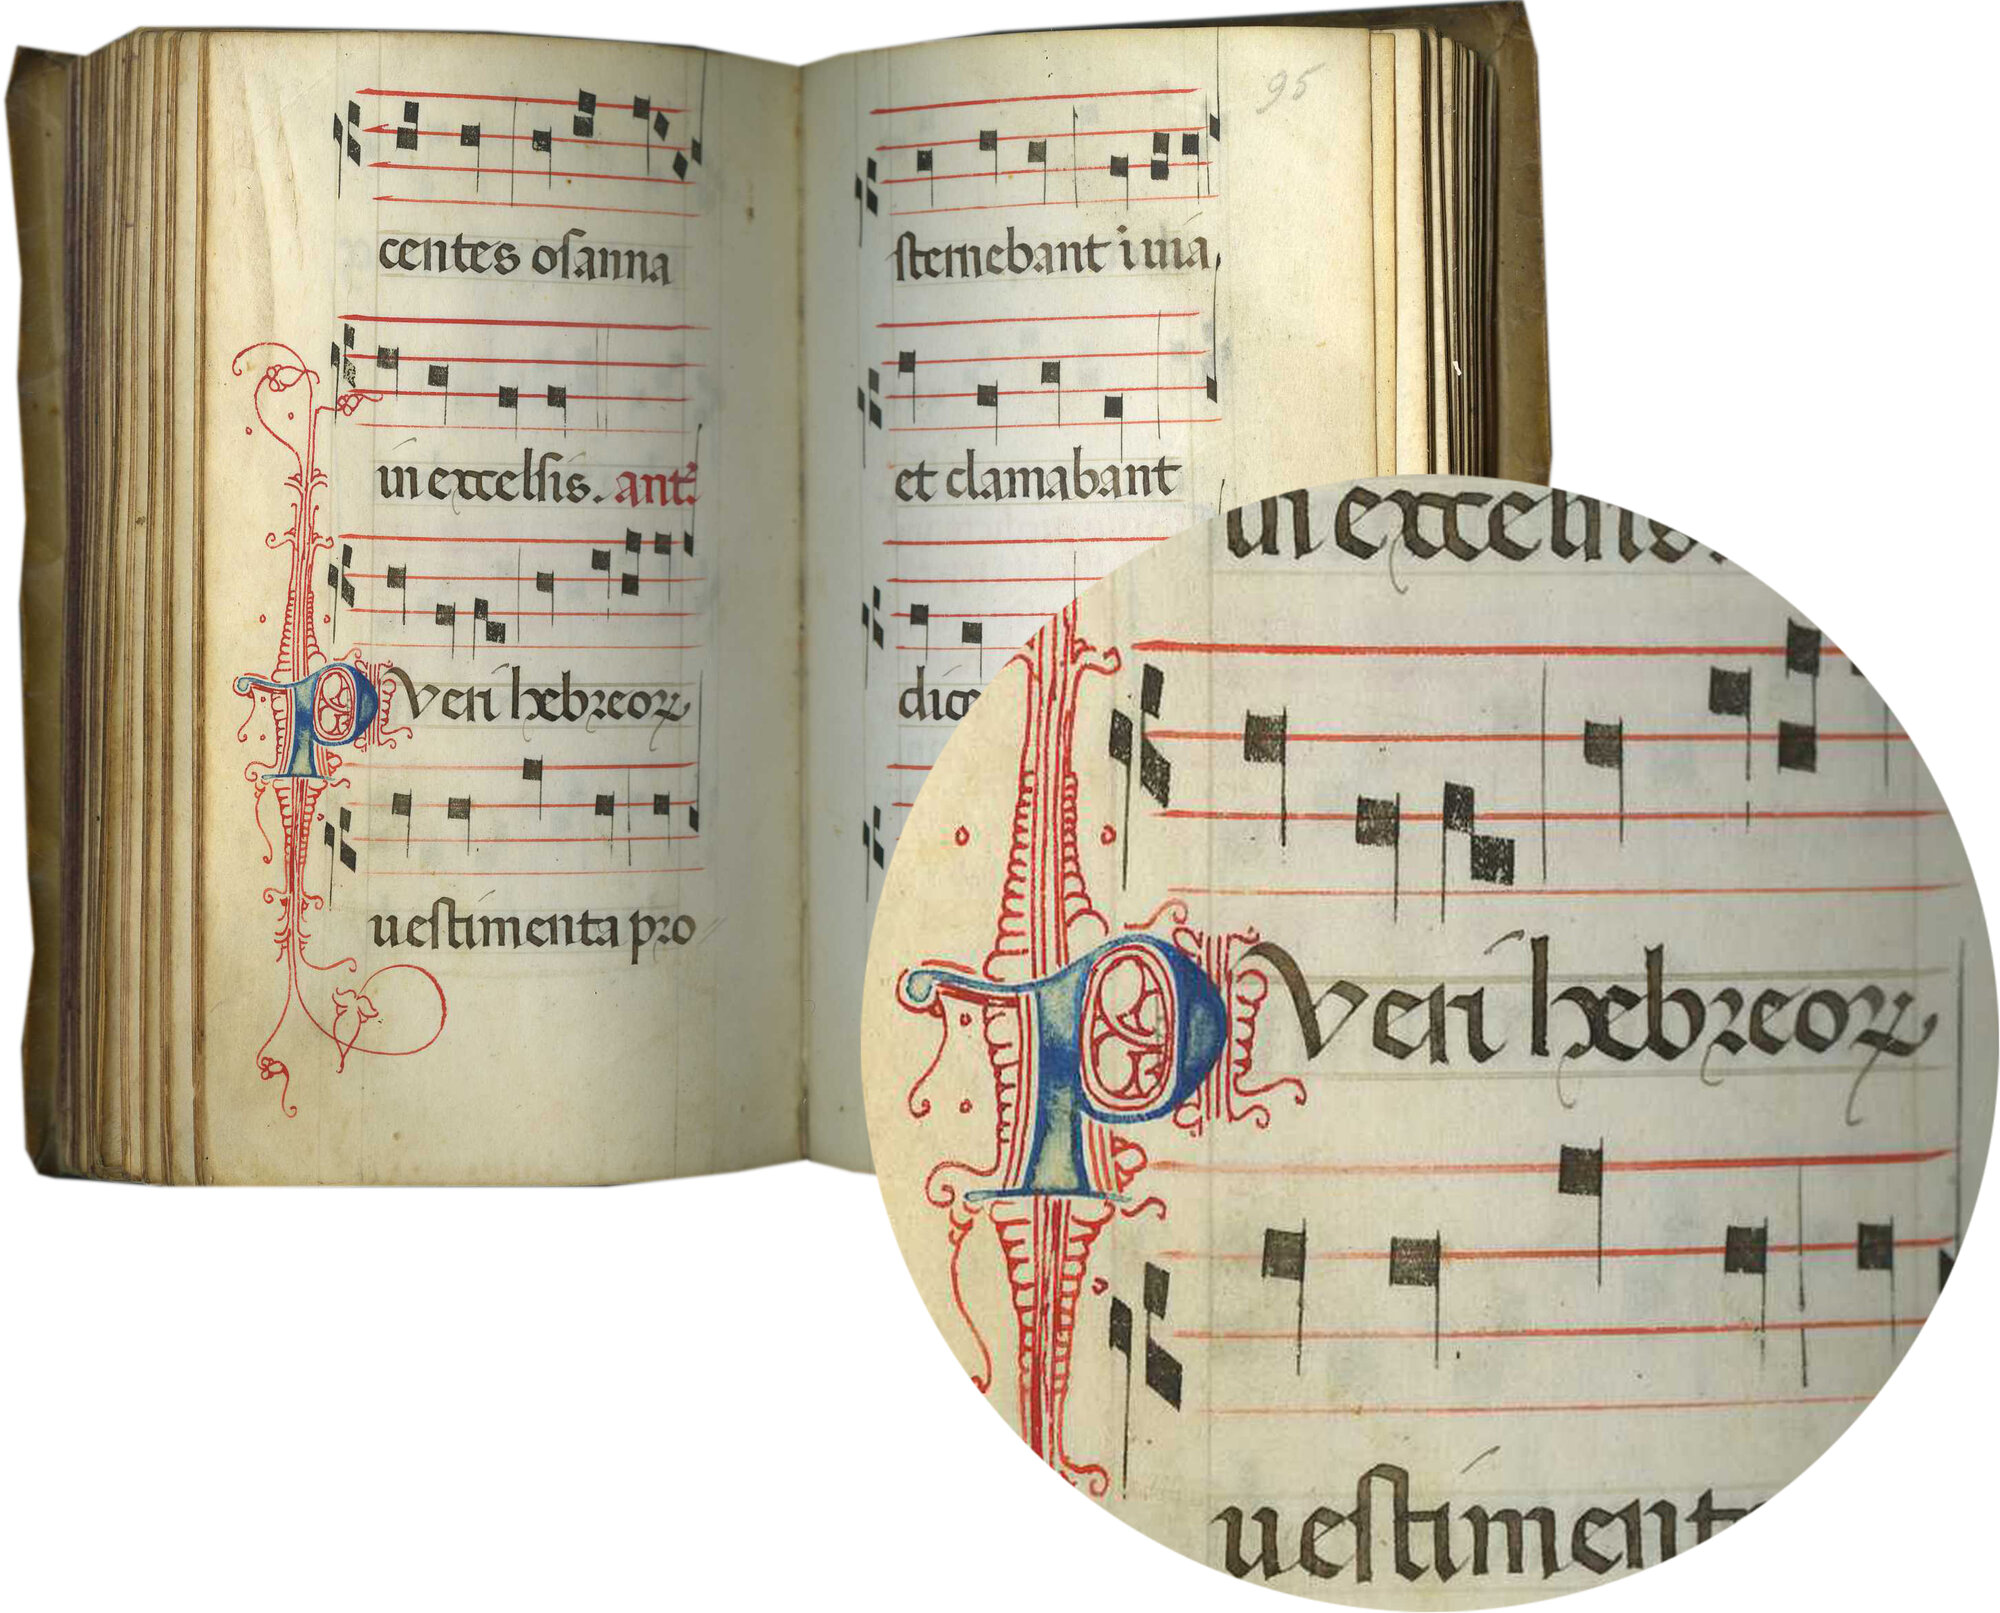 centes osanna
in excelsis. ant̃.
Pveri hebreoꝝ
uestimenta pro
95
sternebant i uia,
et clamabant
dice
in excelsis.
Pveri hebreoꝝ
uestimenta